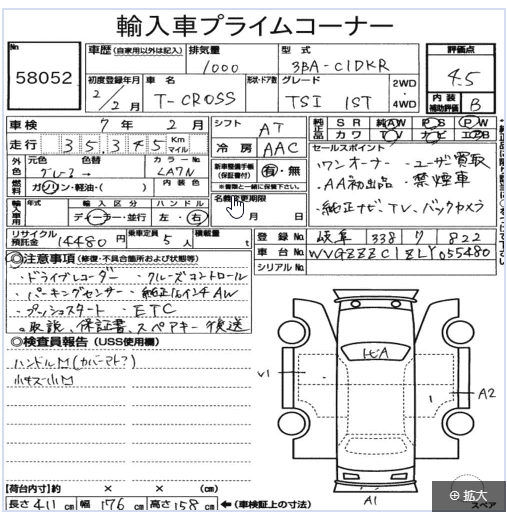 輸入車プライムコーナー
No 58052
車歴 (自家用以外は記入) 排気量 1000 型式 3BA-C1DKR 評価点 4.5
初度登録年月 2/2月 車名 T-CROSS 形状・ドア数 グレード TSI 1ST 2WD・4WD 内装補助評価 B
車検 7年 2月 シフト AT 純正品 SR 純AW PS PW カワ TV ナビ エアB
走行 35,345 Km マイル 冷房 AAC セールスポイント
外色 元色 グレー 色替 → カラーNo. LA7N 新車整備手帳(保証書付) 有・無 ※書類と一緒に保管下さい。
・ワンオーナー ・ユーザー買取
燃料 ガソリン・軽油・( ) 内装色 ・AA初出品 ・禁煙車
輸入車用 年式 輸入区分 ディーラー・並行 ハンドル 左・右 名義変更期限 月 日
・純正ナビ、TV、バックカメラ
リサイクル預託金 14480円 乗車定員 5人 積載量 t 登録No. 岐阜 338 822
車台No. WVGZZZC1ZLY055480
シリアルNo.
◎注意事項 (修復・不具合箇所および状態等)
・ドライブレコーダー ・クルーズコントロール
・パーキングセンサー ・純正 インチAW
・プッシュスタート ・ETC
・取説、保証書、スペアキー後送
◎検査員報告 (USS使用欄)
ハンドル (カバーマト?)
小キズ小凹
V1
A2
A1
【荷台内寸】約 × × (cm)
長さ 411 cm 幅 176 cm 高さ 158 cm ←(車検証上の寸法)
スペア
拡大